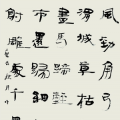 風勁角弓
渭城草枯
盡馬蹄輕
市還歸細
射雕處千